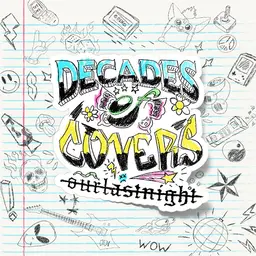 DECADES
COVERS
ourlastnight
WOW